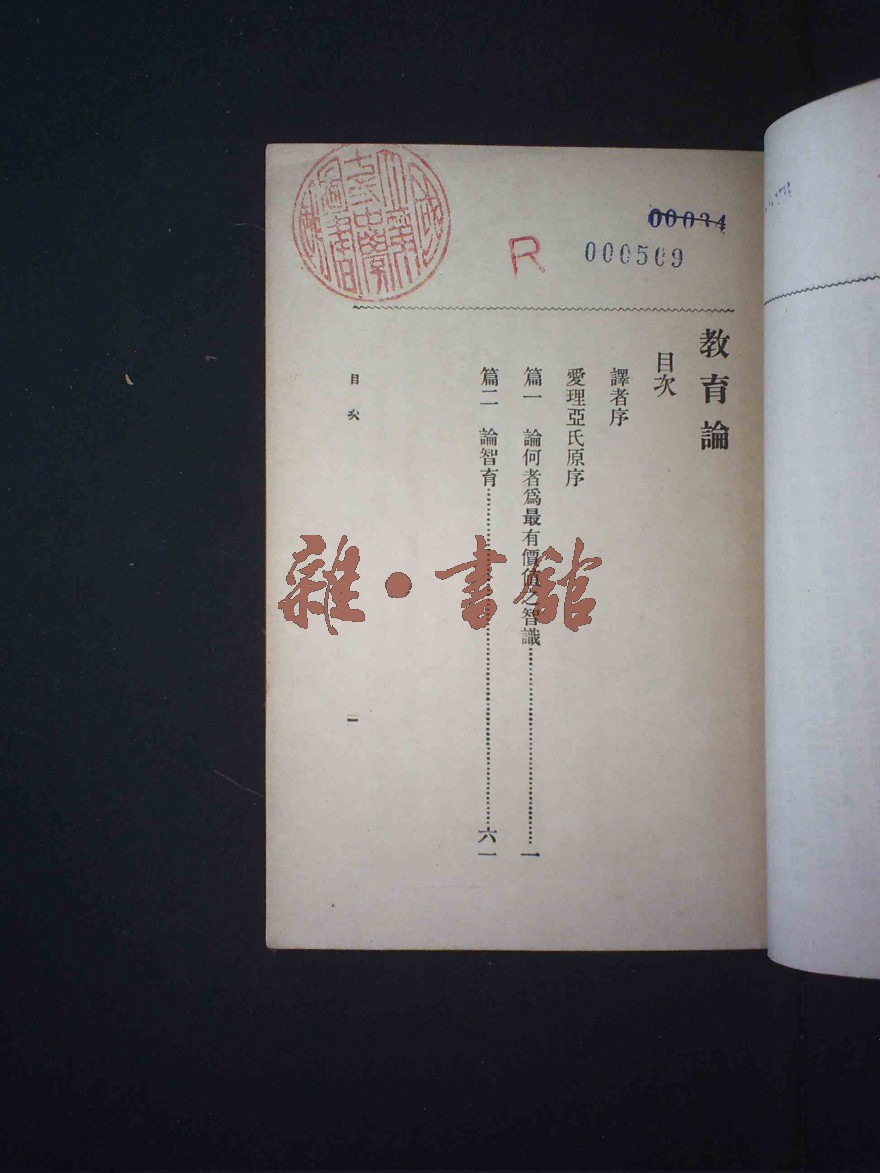 教育論
目次
譯者序
愛理亞氏原序
篇一 論何者爲最有價值之智識……一
篇二 論智育……六一
目次
一
00034
000509
R
雜·書舘